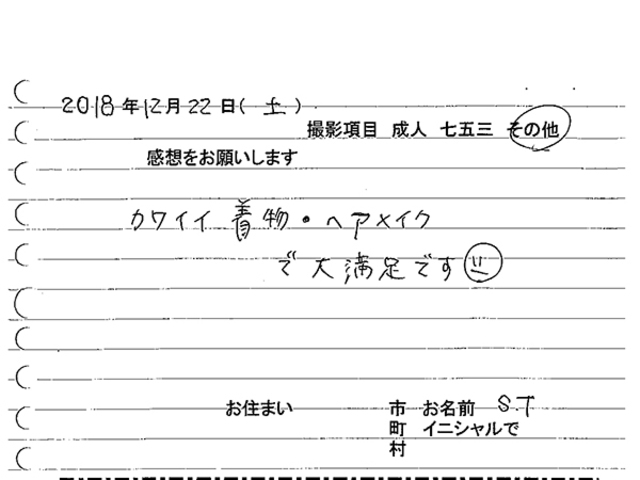 2018年12月22日(土)
撮影項目 成人 七五三 その他
感想をお願いします
カワイイ着物・ヘアメイク
で大満足です
お住まい 市 お名前 S.T
町 イニシャルで
村